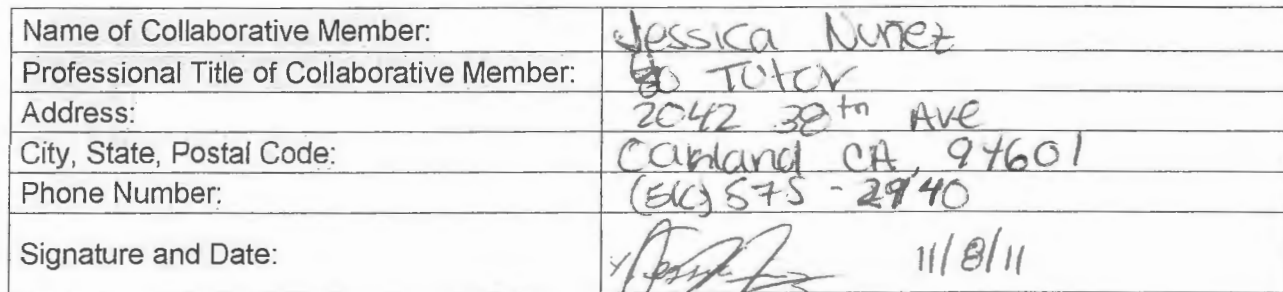 Name of Collaborative Member: Jessica Nuñez
Professional Title of Collaborative Member: Tutor
Address: 2042 38th Ave
City, State, Postal Code: Oakland CA, 94601
Phone Number: (510) 575 - 2940
Signature and Date: 11/8/11